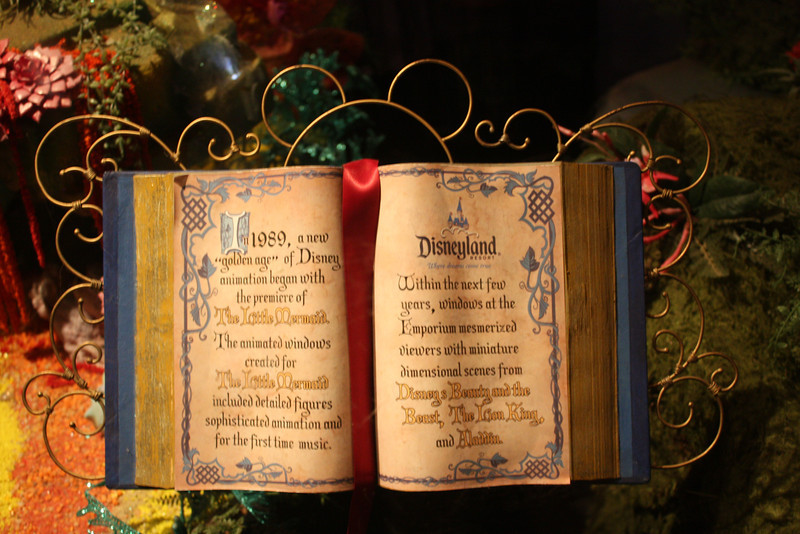 In 1989, a new
"golden age" of Disney
animation began with
the premiere of
The Little Mermaid.
The animated windows
created for
The Little Mermaid
included detailed figures
sophisticated animation and
for the first time music.
Disneyland
RESORT
Where dreams come true
Within the next few
years, windows at the
Emporium mesmerized
viewers with miniature
dimensional scenes from
Disney's Beauty and the
Beast, The Lion King,
and Aladdin.